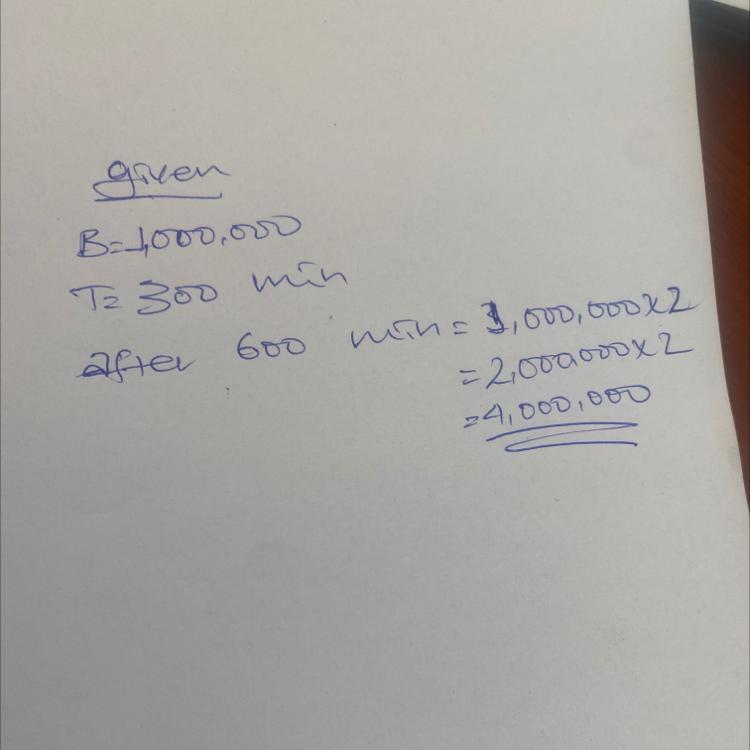 given
B=1,000,000
T= 300 min
after 600 min = 1,000,000x2
= 2,000,000x2
= 4,000,000